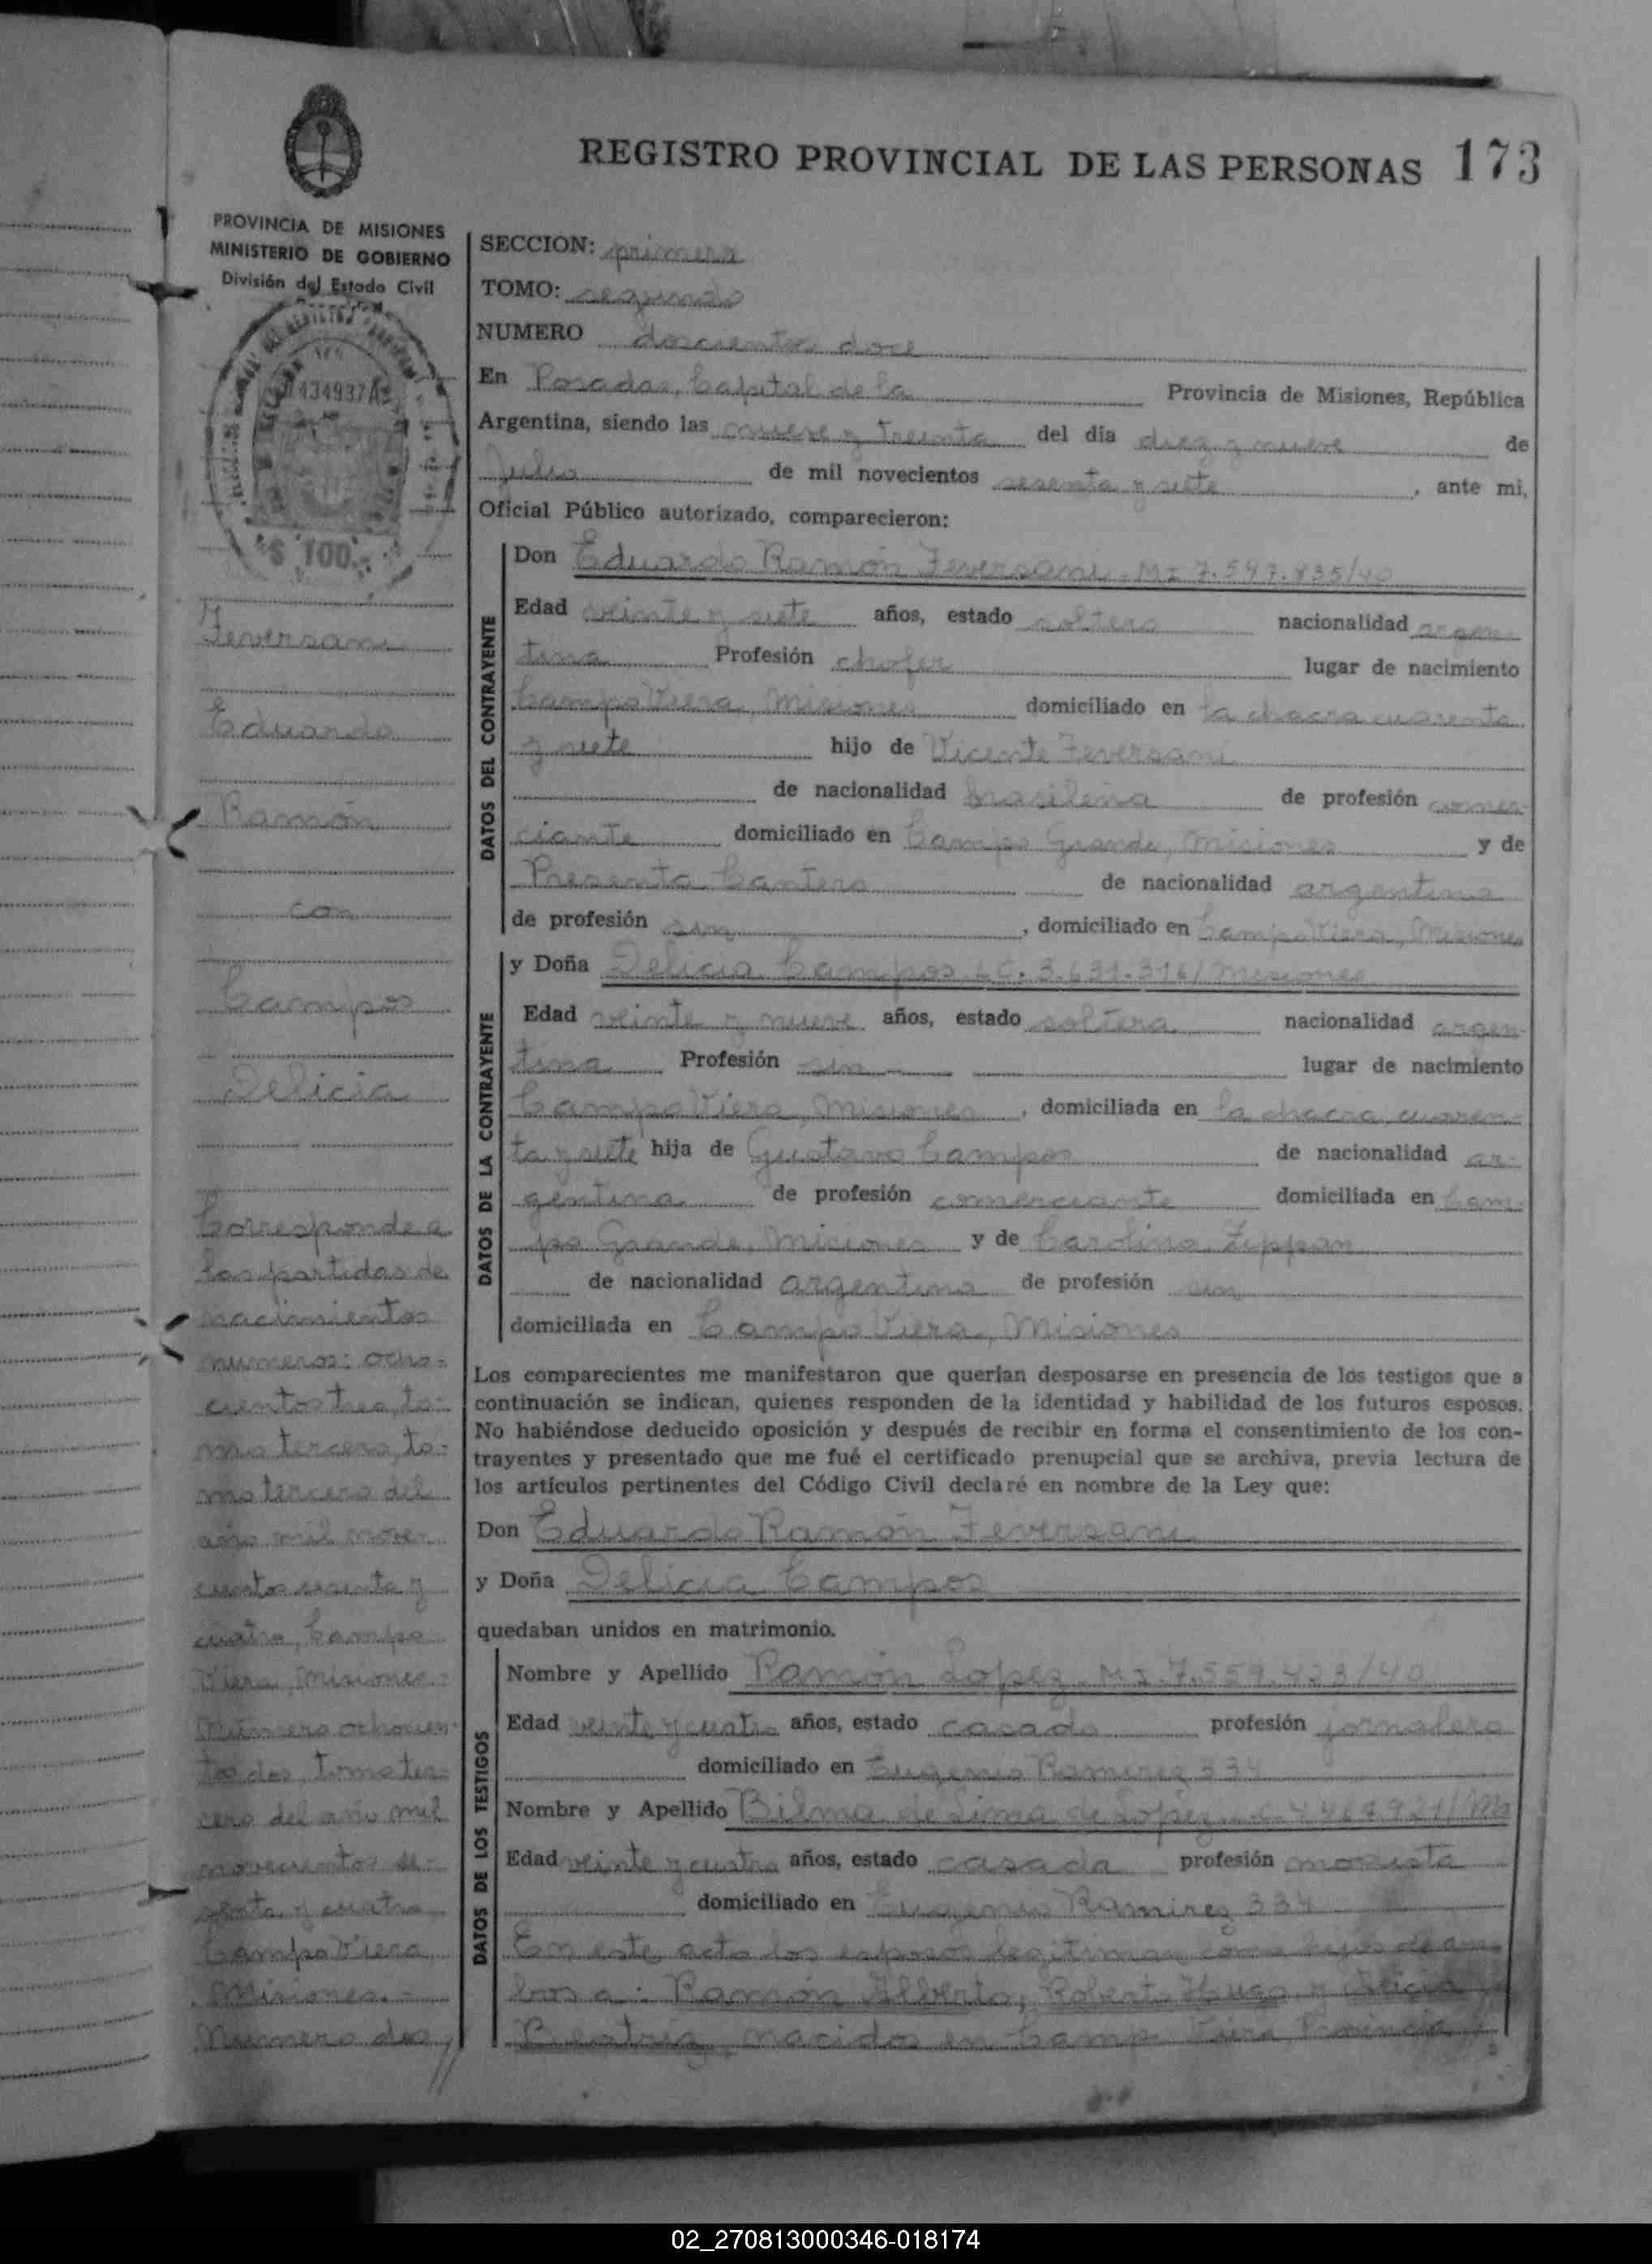 REGISTRO PROVINCIAL DE LAS PERSONAS 173
PROVINCIA DE MISIONES
MINISTERIO DE GOBIERNO
División del Estado Civil
434937
$ 100
Feversani
Eduardo
Ramón
con
Campos
Delicia
Corresponde a
las partidas de
nacimientos
numeros: ocho-
cientos tres, to-
mo tercero, to-
mo tercero del
año mil nove-
cientos sesenta y
cuatro, Campo
Viera, Misiones.-
Número ochocien-
tos dos, Tomo ter-
cero del año mil
novecientos se-
senta y cuatro
Campo Viera
Misiones.-
Número dos
SECCION: primera
TOMO: segundo
NUMERO doscientos doce
En Posadas, Capital de la Provincia de Misiones, República
Argentina, siendo las nueve y treinta del día diez y nueve de
Julio de mil novecientos sesenta y siete, ante mi,
Oficial Público autorizado, comparecieron:
DATOS DEL CONTRAYENTE
Don Eduardo Ramón Feversani MI 7.547.835/40
Edad veinte y siete años, estado soltero nacionalidad argen-
tina Profesión chofer lugar de nacimiento
Campo Viera, Misiones domiciliado en la chacra cuarenta
y siete hijo de Vicente Feversani
de nacionalidad brasileña de profesión comer-
ciante domiciliado en Campo Grande, Misiones y de
Presenta Cantero de nacionalidad argentina
de profesión sin, domiciliado en Campo Viera, Misiones
DATOS DE LA CONTRAYENTE
y Doña Delicia Campos LC. 3.631.316/Misiones
Edad veinte y nueve años, estado soltera nacionalidad argen-
tina Profesión sin lugar de nacimiento
Campo Viera, Misiones, domiciliada en la chacra cuaren-
ta y siete hija de Gustavo Campos de nacionalidad ar-
gentina de profesión comerciante domiciliada en Cam-
po Grande, Misiones y de Carolina Zeppan
de nacionalidad argentina de profesión sin
domiciliada en Campo Viera, Misiones
Los comparecientes me manifestaron que querían desposarse en presencia de los testigos que a
continuación se indican, quienes responden de la identidad y habilidad de los futuros esposos.
No habiéndose deducido oposición y después de recibir en forma el consentimiento de los con-
trayentes y presentado que me fué el certificado prenupcial que se archiva, previa lectura de
los artículos pertinentes del Código Civil declaré en nombre de la Ley que:
Don Eduardo Ramón Feversani
y Doña Delicia Campos
quedaban unidos en matrimonio.
DATOS DE LOS TESTIGOS
Nombre y Apellido Ramón Lopez MI.7.559.423/40
Edad veinte y cuatro años, estado casado profesión jornalero
domiciliado en Eugenio Ramirez 334
Nombre y Apellido Bilma de Lima de Lopez LC 4.464.921/
Edad veinte y cuatro años, estado casada profesión modista
domiciliado en Eugenio Ramirez 334
En este acto los esposos legitiman como hijos de am-
bos a: Ramón Alberto, Roberto Hugo y Alicia
Beatriz, nacidos en Campo Viera, Provincia
02_270813000346-018174